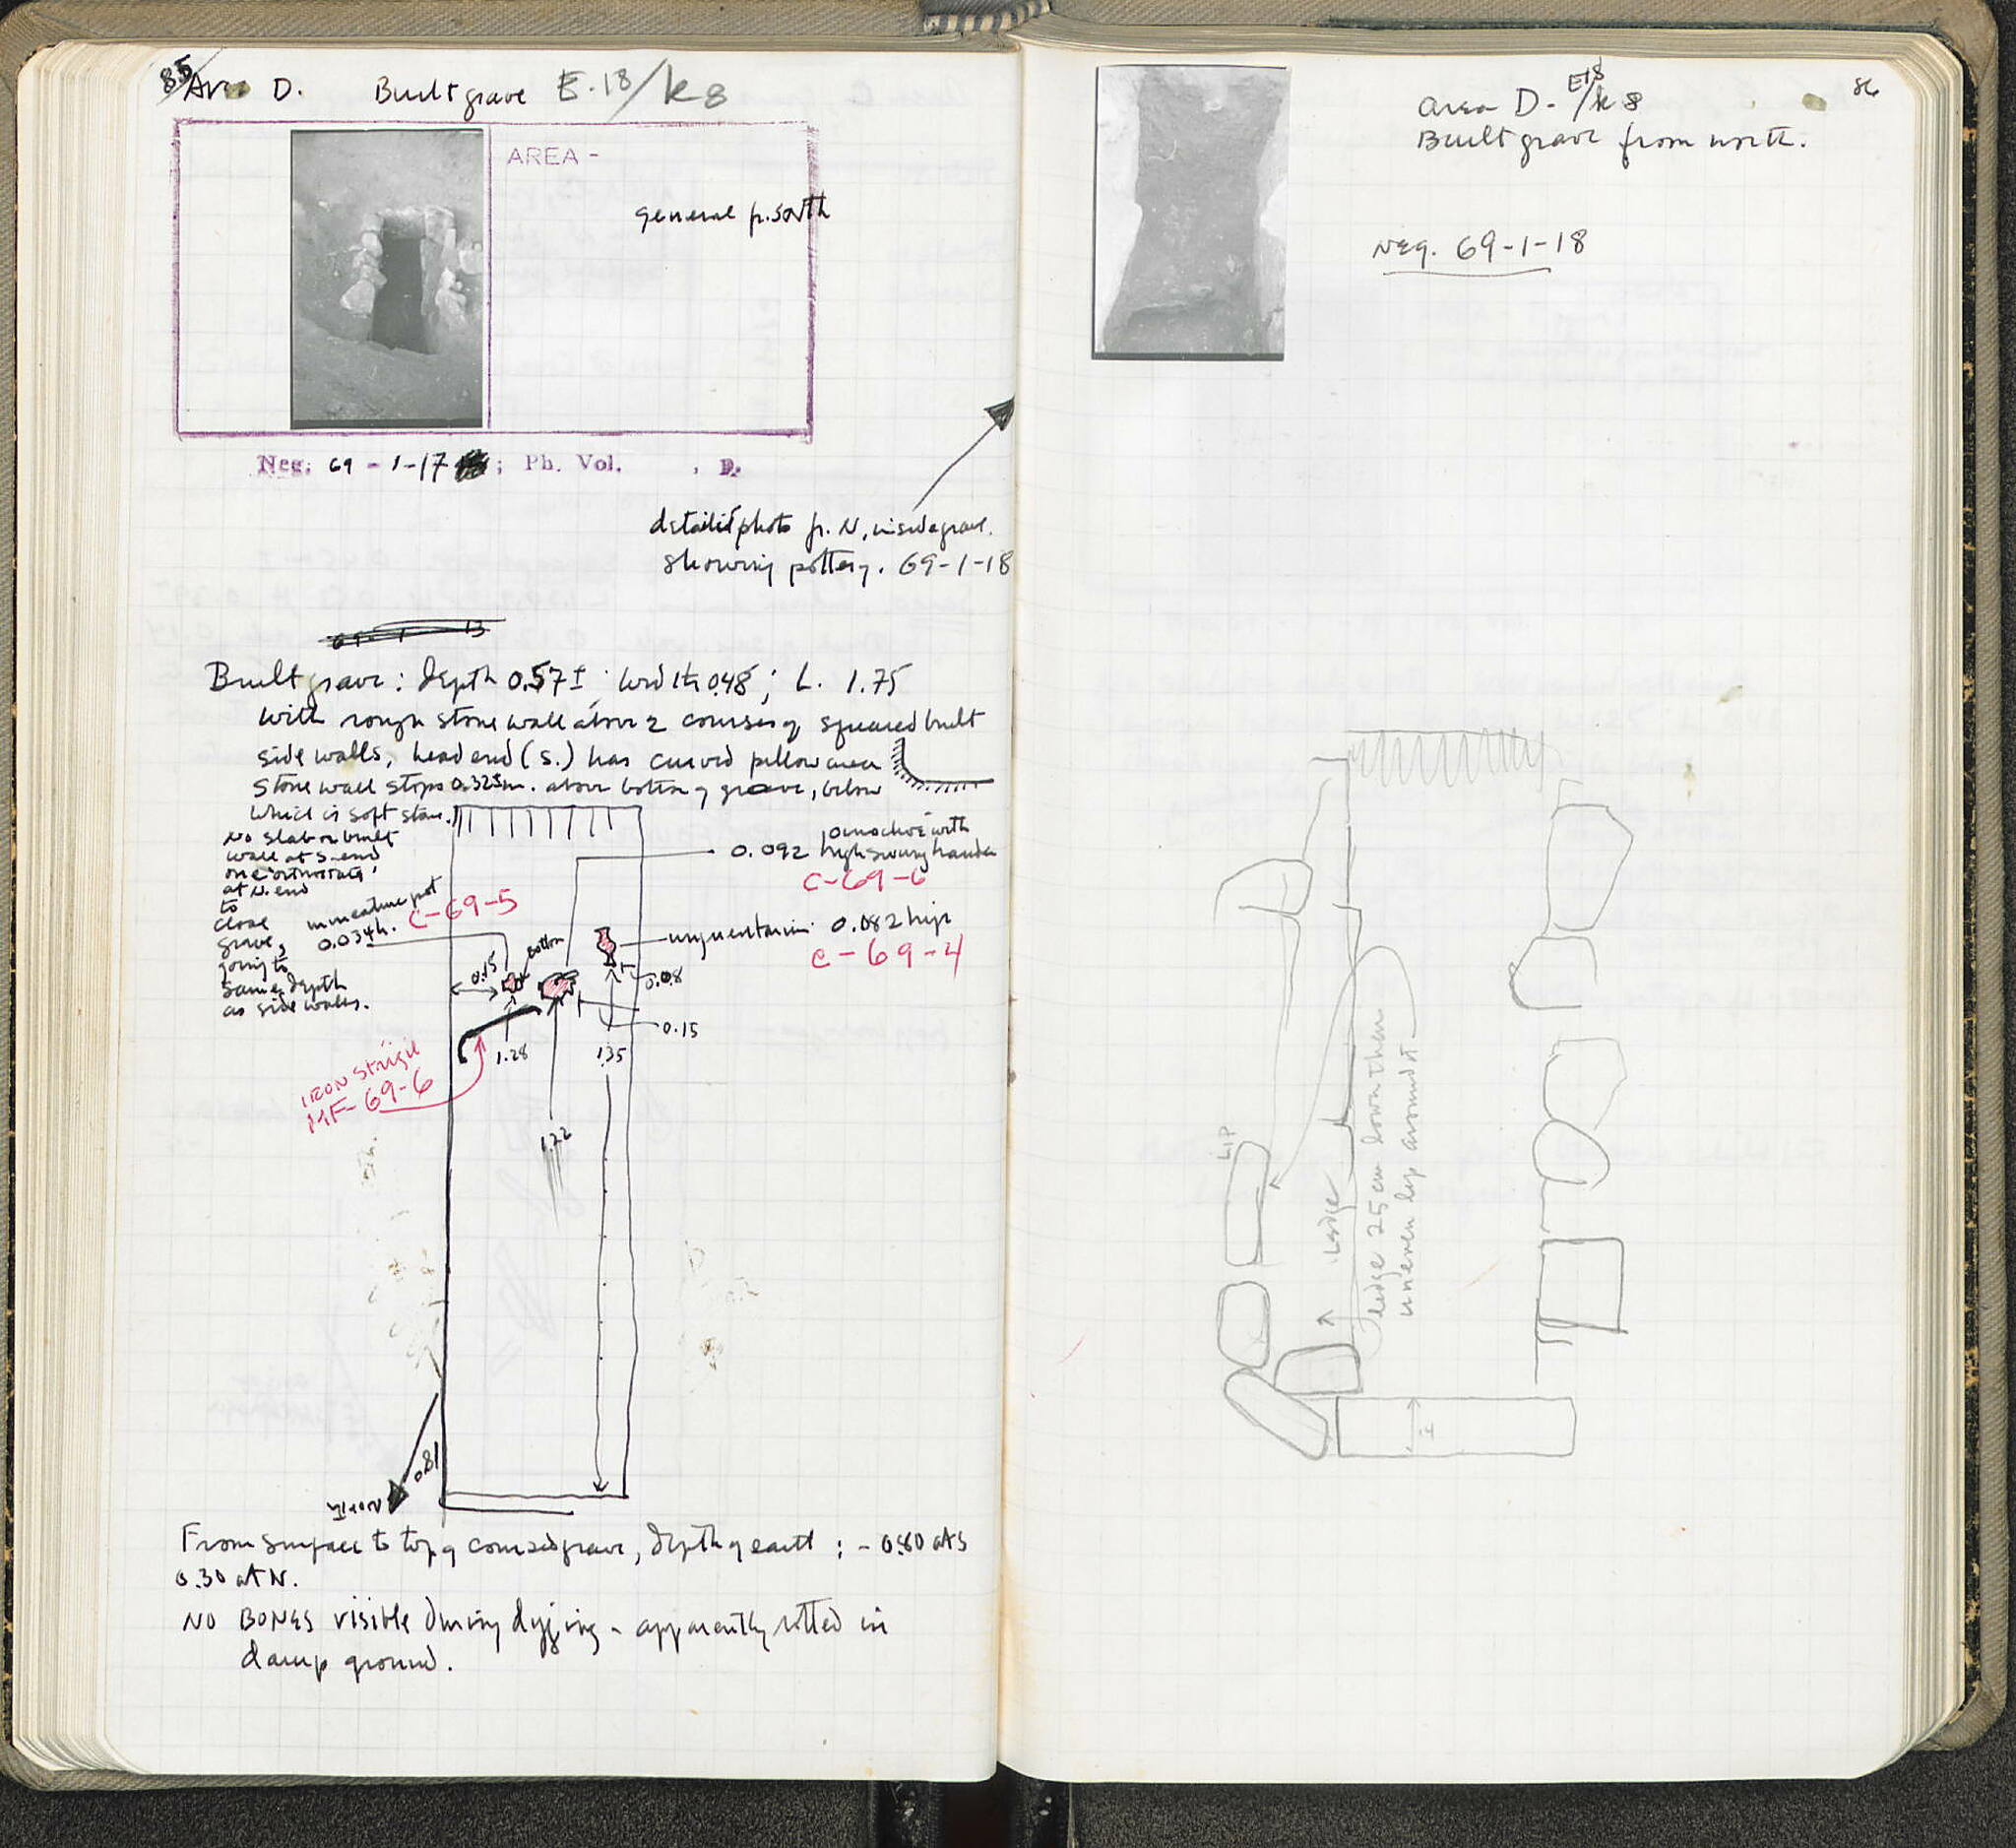 85
Area D. Built grave E.18/k8
AREA -
general fr. south
Neg. 69 - 1-17 ; Ph. Vol. , P.
detailed photo fr. N, inside grave.
showing pottery. 69-1-18
Built grave: depth 0.57±; width 0.48; L. 1.75
with rough stone wall above 2 courses of squared built
side walls, head end (S.) has curved pillow area
Stone wall stops 0.32±m. above bottom of grave, below
which is soft stone.
No slab or built
wall at S. end
one 'orthostate'
at N. end
to
close
grave,
going to
same depth
as side walls.
miniature pot
0.034h.
C-69-5
oinochoe with
0.092 high swung handle
C-69-6
unguentarium 0.082 high
C-69-4
bottom
0.15
0.08
0.15
1.28
1.35
1.22
IRON strigil
MF-69-6
0.81
North
From surface to top of coursed grave, depth of earth : - 0.80 at S
0.30 at N.
NO BONES visible during digging - apparently rotted in
damp ground.
86
Area D. E18/k8
Built grave from north.
Neg. 69-1-18
LIP
Ledge
ledge 25 cm lower than
uneven lip around it